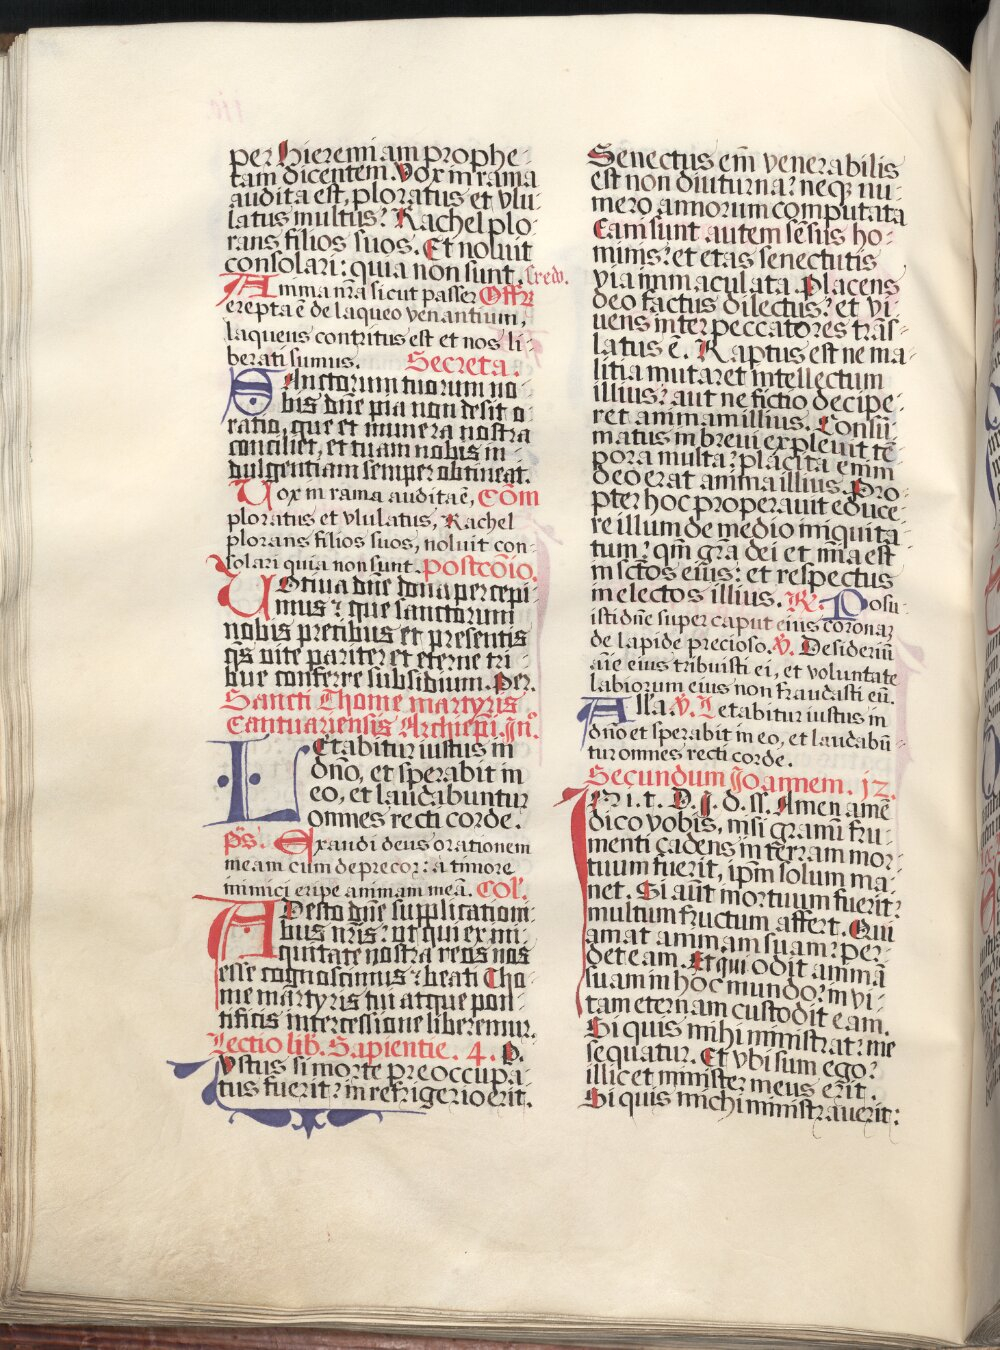 per Hieremiam prophe-
tam dicentem. Vox in rama
audita est, ploratus et vlu-
latus multus? Rachel plo-
rans filios suos. Et noluit
consolari: quia non sunt. Credo.
Anima nr̄a sicut passer Offr̄
erepta ē de laqueo venantium,
laqueus contritus est et nos li-
berati sumus. Secreta.
Sanctorum tuorum no-
bis dn̄e pia non desit o-
ratio, que et munera nostra
conciliet, et tuam nobis in-
dulgentiam semper obtineat.
Vox in rama audita ē, Cōm
ploratus et vlulatus, Rachel
plorans filios suos, noluit con-
solari quia non sunt. postcōio.
Uotiua dn̄e dona percepi-
mus? que sanctorum
nobis precibus et presentis
qs̄ vite pariter et eterne tri-
bue conferre subsidium. Per.
Sancti Thome martyris
Cantuariensis Archiepī. In͞o.
Letabitur iustus in
dn̄o, et sperabit in
eo, et laudabuntur
omnes recti corde.
ps̄. Exaudi deus orationem
meam cum deprecor: a timore
inimici eripe animam meā. Col'.
Adesto dn̄e supplicationi-
bus nr̄is? ut qui ex ini-
quitate nostra reos nos
esse cognoscimus? beati Tho-
me martyris tui atque pon-
tificis intercessione liberemur.
Lectio lib. Sapientie. 4. P.
Iustus si morte preoccupa-
tus fuerit? in refrigerio erit.
Senectus em̄ venerabilis
est non diuturna? neqȝ nu-
mero annorum computata
Cam sunt autem sesus ho-
minis? et etas senectutis
via immaculata. Placens
deo factus dilectus? et vi-
uens inter peccatores trās-
latus ē. Raptus est ne ma-
litia mutaret intellectum
illius? aut ne fictio decipe-
ret animam illius. Consū-
matus in breui expleuit tē-
pora multa? placita enim
deo erat anima illius. Pro-
pter hoc properauit educe-
re illum de medio iniquita-
tum? qm̄ gr̄a dei et mīa est
in sc̄tos eius: et respectus
in electos illius. R̄. Posu-
isti dn̄e super caput eius coronaȝ
de lapide precioso. v̄. Desideriū
aīe eius tribuisti ei, et voluntate
labiorum eius non fraudasti eū.
Alla. v̄. Letabitur iustus in
dn̄o et sperabit in eo, et laudabū-
tur omnes recti corde.
Secundum Joannem. 12.
In i. t. D. J. d. ss. Amen amē
dico vobis, nisi granū fru-
menti cadens in terram mor-
tuum fuerit, ipm̄ solum ma-
net. Si aūt mortuum fuerit?
multum fructum affert. Qui
amat animam suam? per-
det eam. Et qui odit animā
suam in hoc mundo? in vi-
tam eternam custodit eam.
Si quis mihi ministrat? me
sequatur. Et vbi sum ego?
illic et minister meus erit.
Si quis michi ministrauerit: